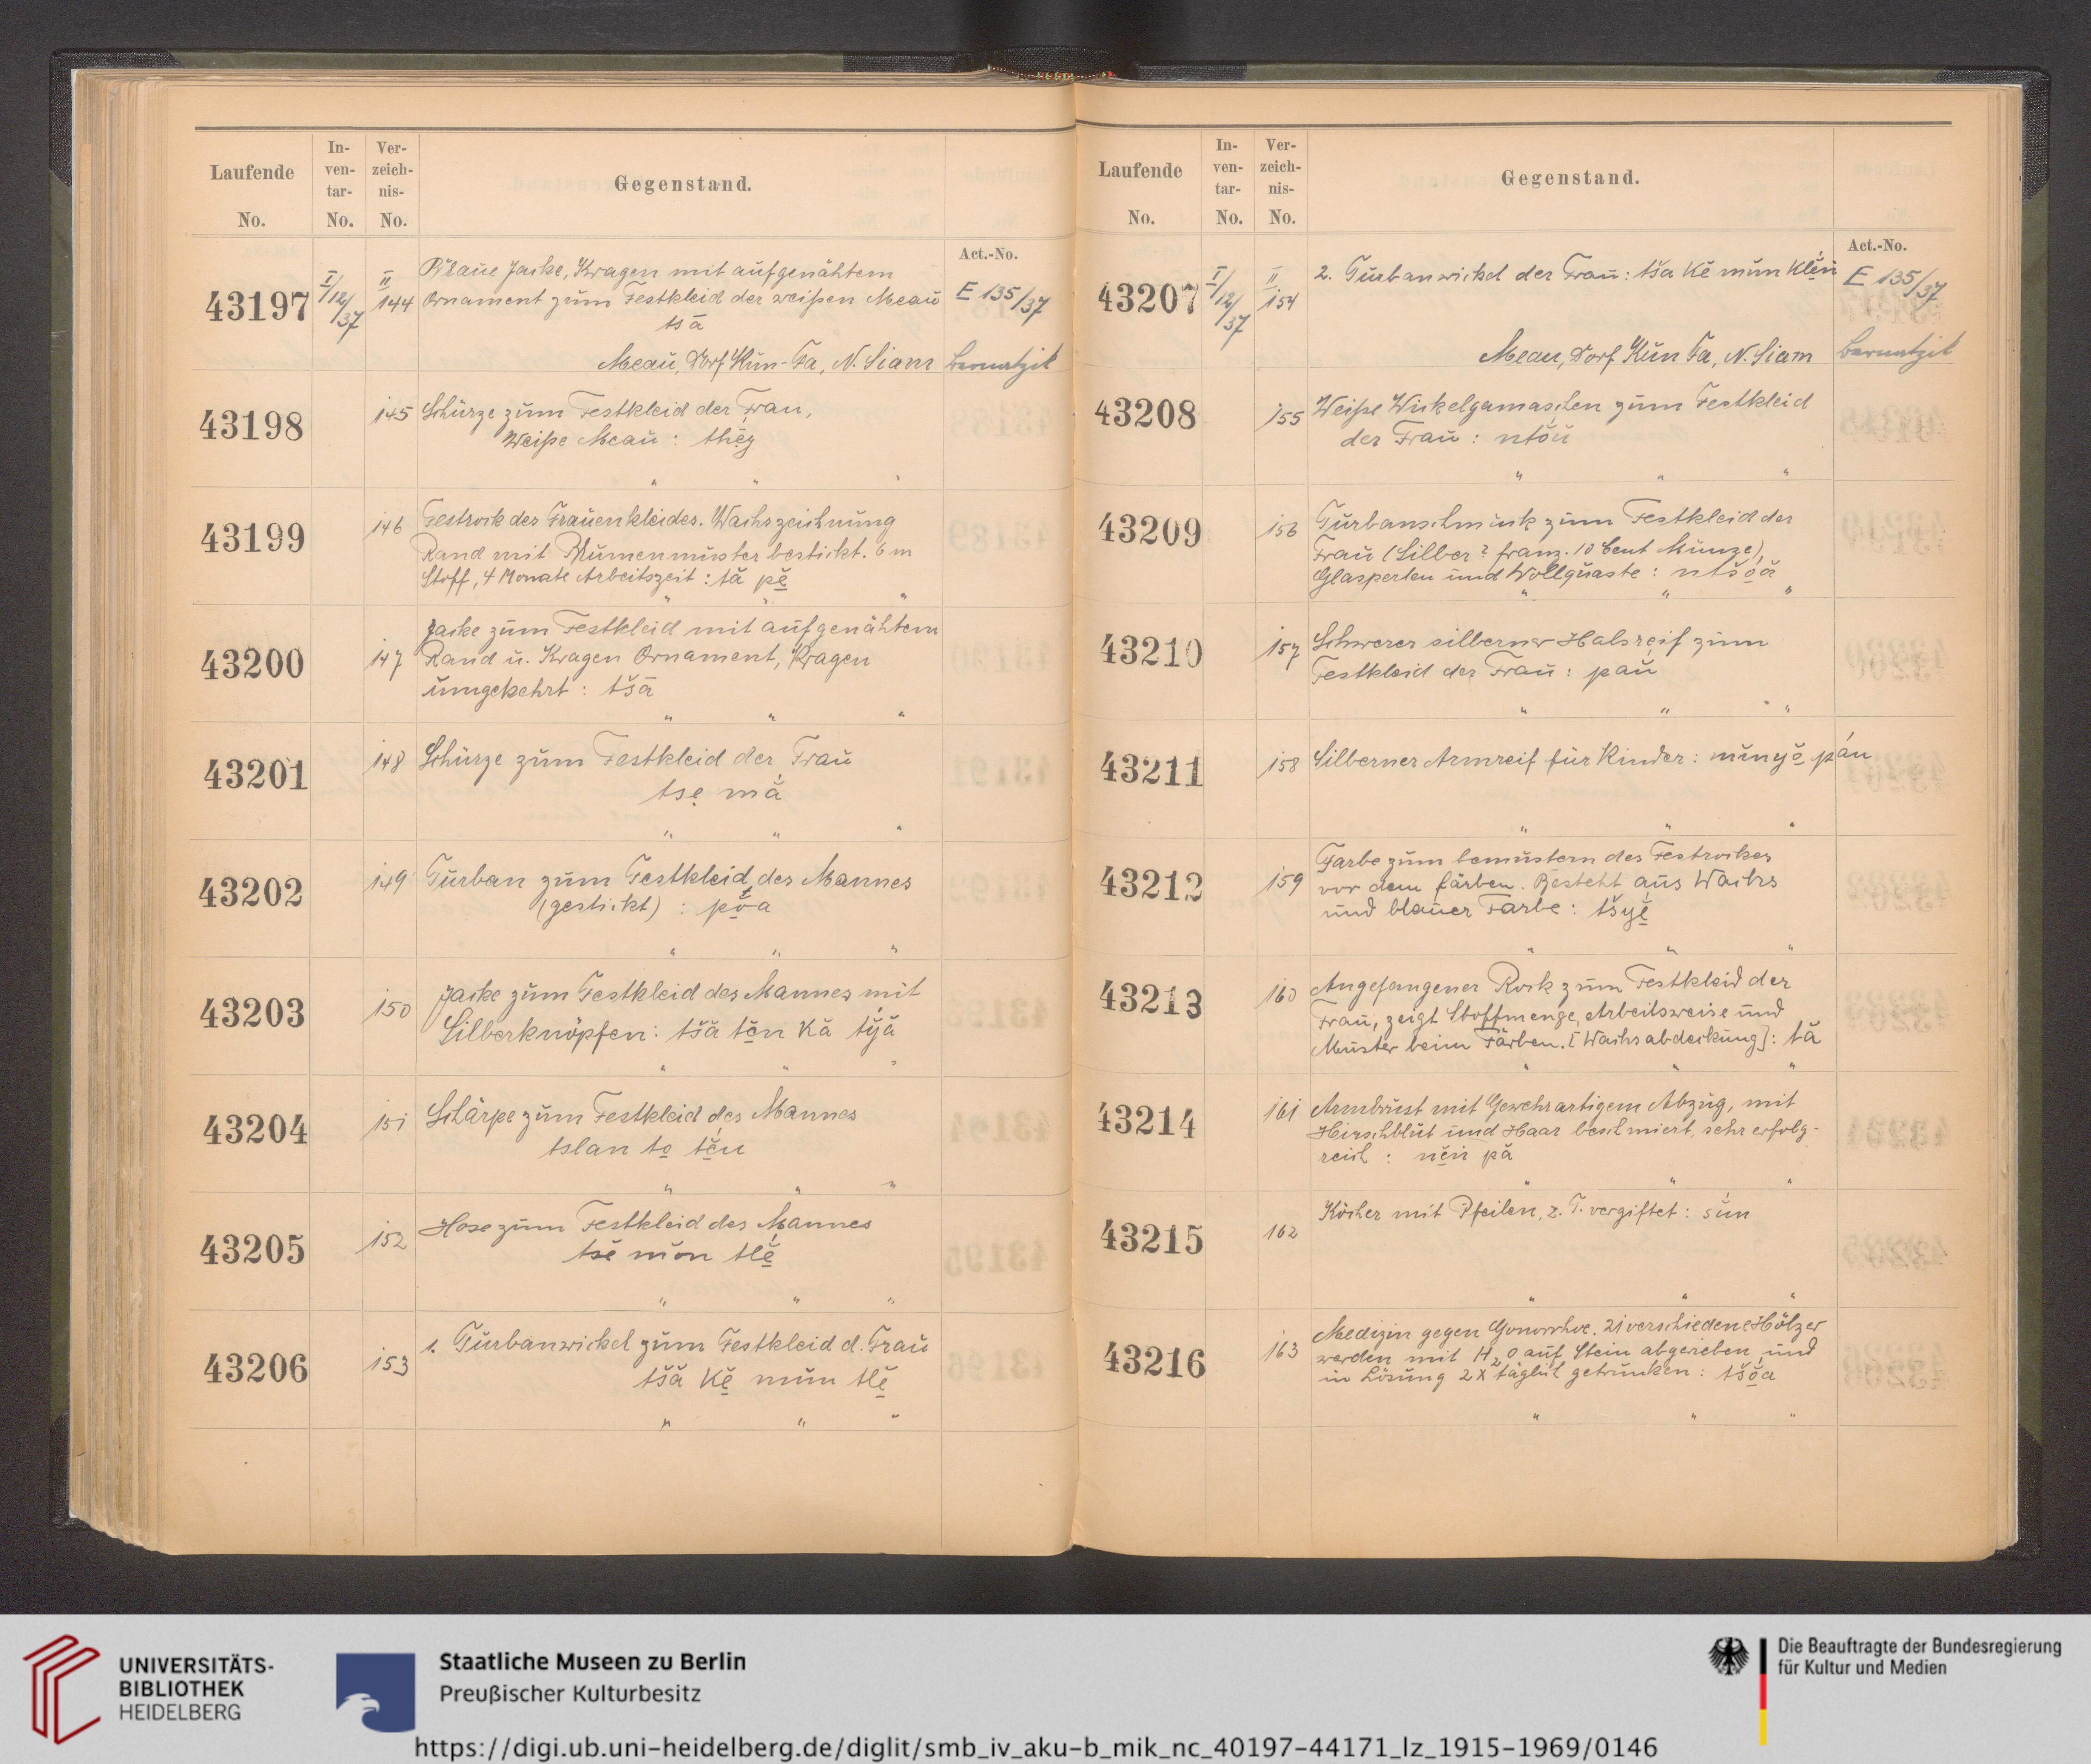 Laufende No.
In-ven-tar-No.
Ver-zeich-nis-No.
Gegenstand.
Act.-No.
43197
I/12/37
II 144
Blaue Jacke, Kragen mit aufgenähtem
Ornament zum Festkleid der weißen Meau
tsā
E 135/37
Meau, Dorf Kun-Fa, N. Siam Bernatzik
43198
145
Schürze zum Festkleid der Frau,
Weiße Meau:
" " "
43199
146
Festrock des Frauenkleides. Wachszeichnung
Rand mit Blumenmuster bestickt. 6 m
Stoff, 4 Monate Arbeitszeit: tă pĕ̱
" " "
43200
147
Jacke zum Festkleid mit aufgenähtem
Rand u. Kragen Ornament, Kragen
umgekehrt: tšā
" " "
43201
148
Schürze zum Festkleid der Frau
tsẹ mă
" " "
43202
149
Turban zum Festkleid des Mannes
(gestickt): pο̱̆a
" " "
43203
150
Jacke zum Festkleid des Mannes mit
Silberknöpfen: tšă
" " "
43204
151
Schärpe zum Festkleid des Mannes
tslan to̱ tĕ̱u
" " "
43205
152
Hose zum Festkleid des Mannes
tsĕ mŏn tlĕ̱
" " "
43206
153
1. Turbanwickel zum Festkleid d. Frau
tšă Kĕ̱ mŭn tlĕ̱
" " "
Laufende No.
In-ven-tar-No.
Ver-zeich-nis-No.
Gegenstand.
Act.-No.
43207
I/12/37
II 154
2. Turbanwickel der Frau: tša Kĕ mŭn
E 135/37
Meau, Dorf Kun Fa, N. Siam Bernatzik
43208
155
Weiße Wickelgamaschen zum Festkleid
der Frau:
" " "
43209
156
Turbanschmuck zum Festkleid der
Frau (Silber? franz. 10 Cent Münze),
Glasperlen und Wollquaste: ntšo̱ă
" " "
43210
157
Schwerer silberner Halsreif zum
Festkleid der Frau: pau
" " "
43211
158
Silberner Armreif für Kinder:
" " "
43212
159
Farbe zum bemustern des Festrockes
vor dem färben. Besteht aus Wachs
und blauer Farbe: tšyĕ̱
" " "
43213
160
Angefangener Rock zum Festkleid der
Frau, zeigt Stoffmenge, Arbeitsweise und
Muster beim Färben. [Wachsabdeckung]: tă
" " "
43214
161
Armbrust mit Gewehrartigem Abzug, mit
Hirschblut und Haar beschmiert, sehr erfolg-
reich:
" " "
43215
162
Köcher mit Pfeilen, z. T. vergiftet:
" " "
43216
163
Medizin gegen Gonorrhoe. 21 verschiedene Hölzer
werden mit H₂O auf Stein abgerieben und
in Lösung 2x täglich getrunken: tšŏ̱a
" " "
UNIVERSITÄTS-
BIBLIOTHEK
HEIDELBERG
Staatliche Museen zu Berlin
Preußischer Kulturbesitz
Die Beauftragte der Bundesregierung
für Kultur und Medien
https://digi.ub.uni-heidelberg.de/diglit/smb_iv_aku-b_mik_nc_40197-44171_lz_1915-1969/0146